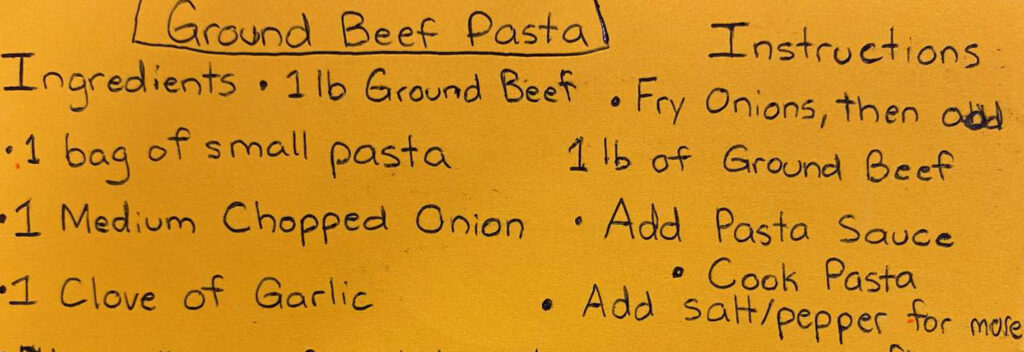 Ground Beef Pasta
Ingredients • 1 lb Ground Beef
• 1 bag of small pasta
• 1 Medium Chopped Onion
• 1 Clove of Garlic
Instructions
• Fry Onions, then add
1 lb of Ground Beef
• Add Pasta Sauce
• Cook Pasta
• Add salt/pepper for more